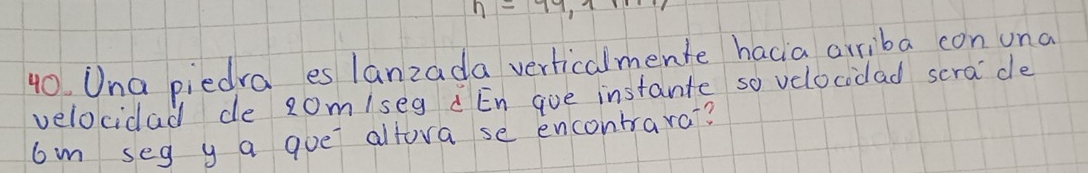 40. Una piedra es lanzada verticalmente hacia arriba con una
velocidad de 20m/seg ¿ En que instante so velocidad será de
6m seg y a que altora se encontrara?